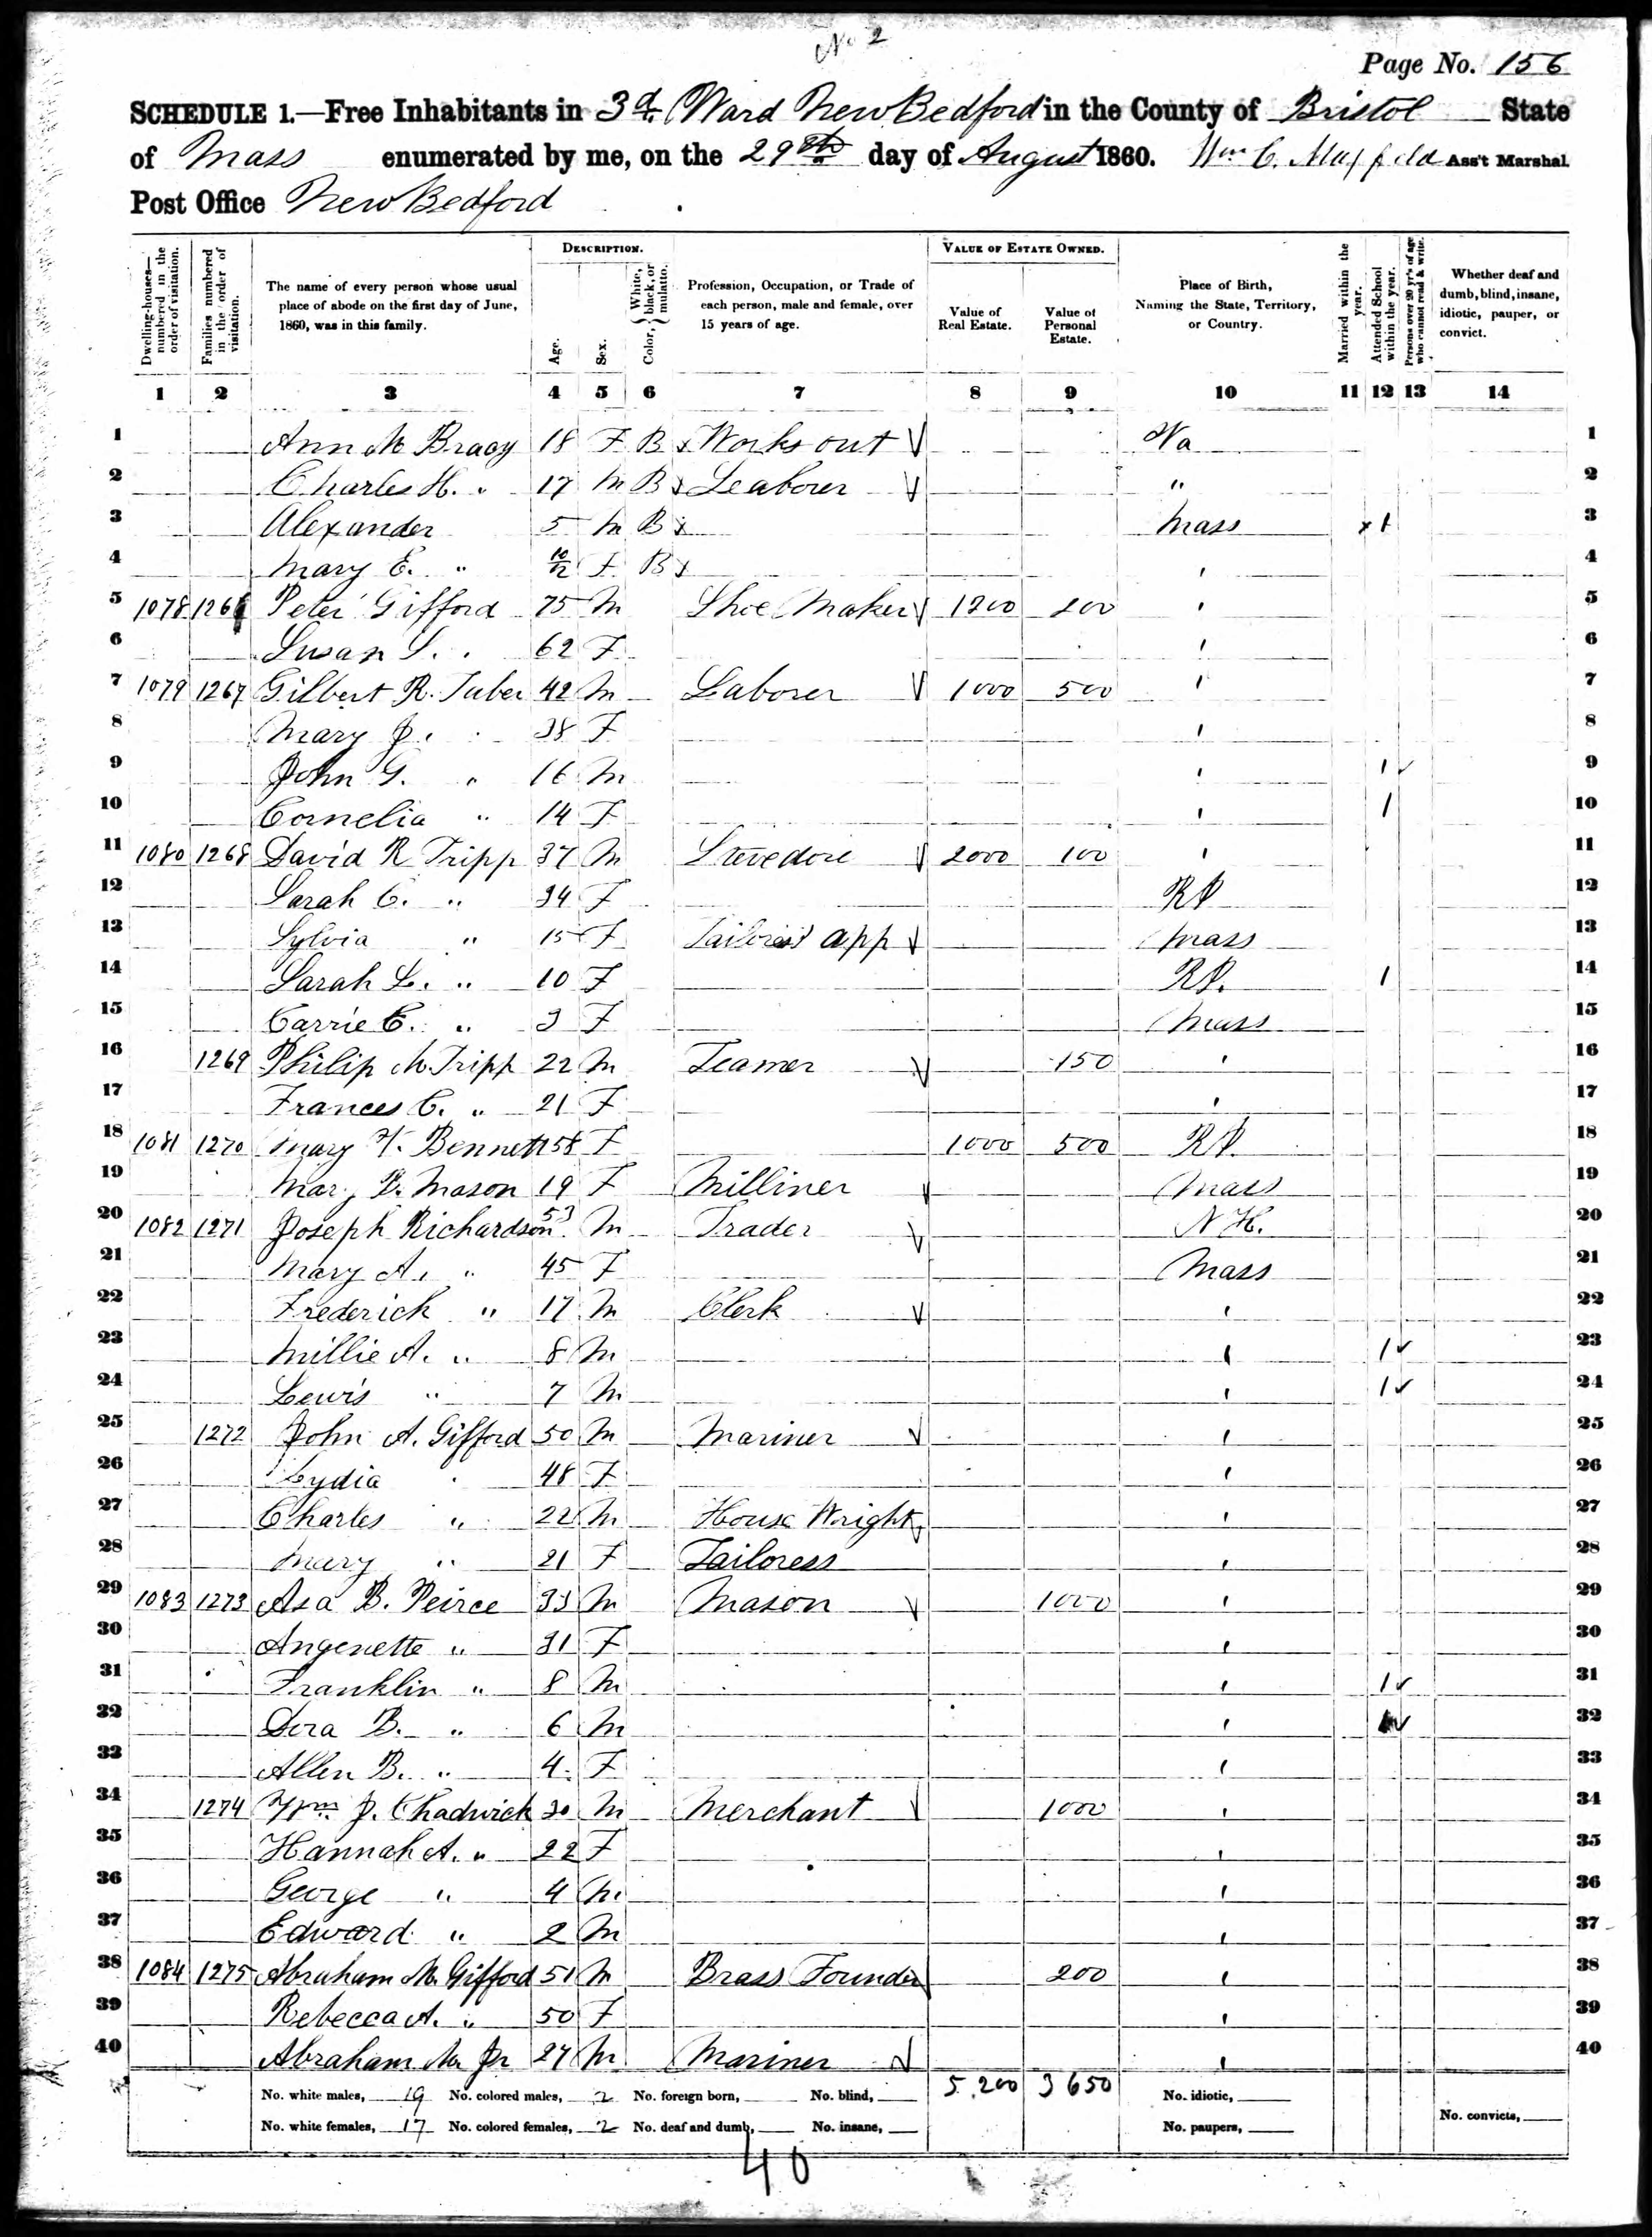 No 2
Page No. 156
SCHEDULE 1.—Free Inhabitants in 3d. Ward New Bedford in the County of Bristol State
of Mass enumerated by me, on the 29th day of August 1860. Wm C. Ass't Marshal.
Post Office New Bedford
DESCRIPTION. VALUE OF ESTATE OWNED.
Dwelling-houses—numbered in the order of visitation. Families numbered in the order of visitation. The name of every person whose usual place of abode on the first day of June, 1860, was in this family. Age. Sex. Color, { White, black, or mulatto. Profession, Occupation, or Trade of each person, male and female, over 15 years of age. Value of Real Estate. Value of Personal Estate. Place of Birth, Naming the State, Territory, or Country. Married within the year. Attended School within the year. Persons over 20 y'rs of age who cannot read & write. Whether deaf and dumb, blind, insane, idiotic, pauper, or convict.
1 2 3 4 5 6 7 8 9 10 11 12 13 14
1 Ann M Bracy 18 F B Works out Va 1
2 Charles H. " 17 M B Leaborer " 2
3 Alexander 5 M B Mass 1 3
4 Mary E. " 10/12 F B ' 4
5 1078 1266 Peter Gifford 75 M Shoe Maker 1200 200 ' 5
6 Susan S. " 62 F ' 6
7 1079 1267 Gilbert R. Taber 42 M Laborer 1000 500 ' 7
8 Mary J. " 38 F ' 8
9 John G. " 16 M ' 1 9
10 Cornelia " 14 F ' 1 10
11 1080 1268 David R Tripp 37 M Stevedore 2000 100 ' 11
12 Sarah C. " 34 F RI 12
13 Sylvia " 15 F Tailoress app Mass 13
14 Sarah L. " 10 F RI. 1 14
15 Carrie C. " 3 F Mass 15
16 1269 Philip M Tripp 22 M Teamer 150 ' 16
17 Frances C. " 21 F ' 17
18 1081 1270 Mary Bennett 58 F 1000 500 RI 18
19 Mary Mason 19 F Milliner Mass 19
20 1082 1271 Joseph Richardson 53 M Trader N H. 20
21 Mary A. " 45 F Mass 21
22 Frederick " 17 M Clerk ' 22
23 Millie A. " 8 M ' 1 23
24 Lewis " 7 M ' 1 24
25 1272 John A. Gifford 50 M Mariner ' 25
26 Lydia " 48 F ' 26
27 Charles " 22 M House Wright ' 27
28 Mary " 21 F Tailoress ' 28
29 1083 1273 Asa B. Peirce 33 M Mason 1000 ' 29
30 Angenette " 31 F ' 30
31 Franklin " 8 M ' 1 31
32 Dora B. " 6 M ' 1 32
33 Allen B. " 4 F ' 33
34 1274 Wm J. Chadwick 30 M Merchant 1000 ' 34
35 Hannah A. " 22 F ' 35
36 George " 4 M ' 36
37 Edward " 2 M ' 37
38 1084 1275 Abraham M. Gifford 51 M Brass Founder 200 ' 38
39 Rebecca A. " 50 F ' 39
40 Abraham M Jr 27 M Mariner ' 40
No. white males, 19 No. colored males, 2 No. foreign born, No. blind, 5.200 3650 No. idiotic,
No. white females, 17 No. colored females, 2 No. deaf and dumb, No. insane, No. paupers, No. convicts,
40